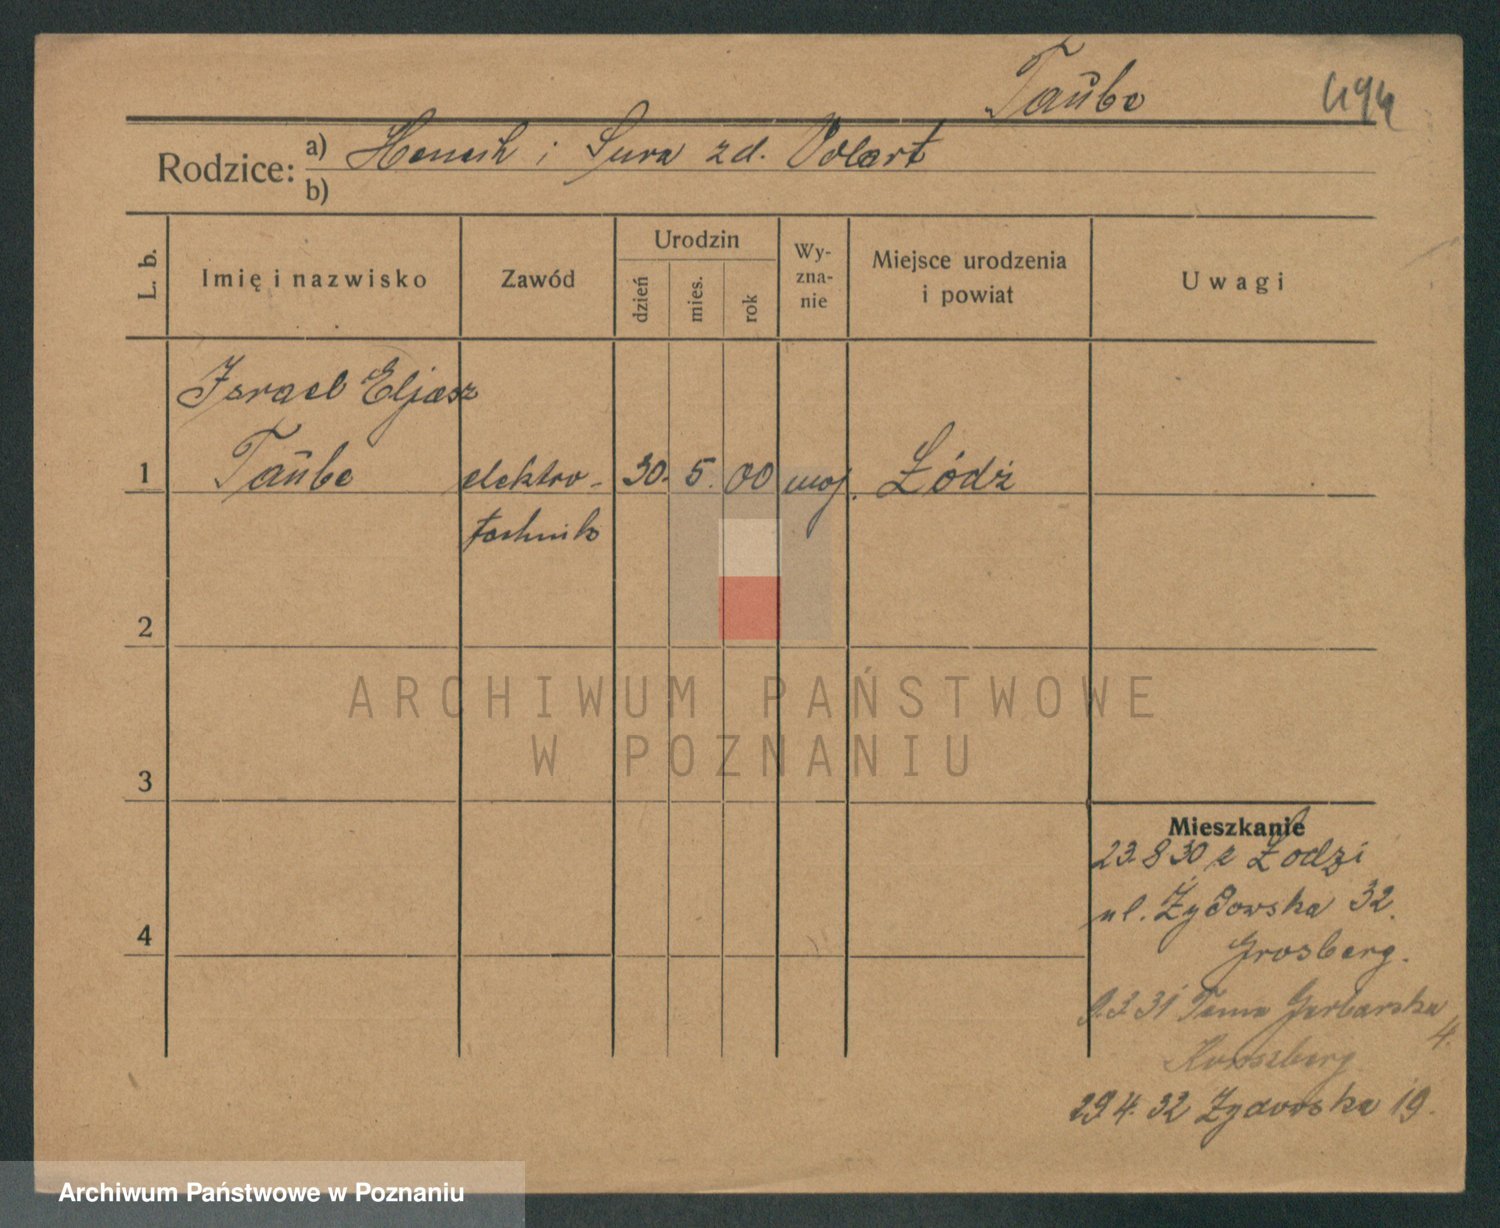 Taŭbe 494
Rodzice: a) Henoch i Sura zd. Volart
b)
L. b. Imię i nazwisko Zawód Urodzin dzień mies. rok Wy-zna-nie Miejsce urodzenia i powiat Uwagi
Israel Eljasz
1 Taŭbe elektro- 30. 5. 00 moj. Łódź
technik
2
ARCHIWUM PAŃSTWOWE
W POZNANIU
3
Mieszkanie
23.8 30 z Łodzi
4 ul. Żydowska 32.
Grosberg.
9.3.31 Tama Garbarska
4.
29.4.32 Żydowska 19.
Archiwum Państwowe w Poznaniu